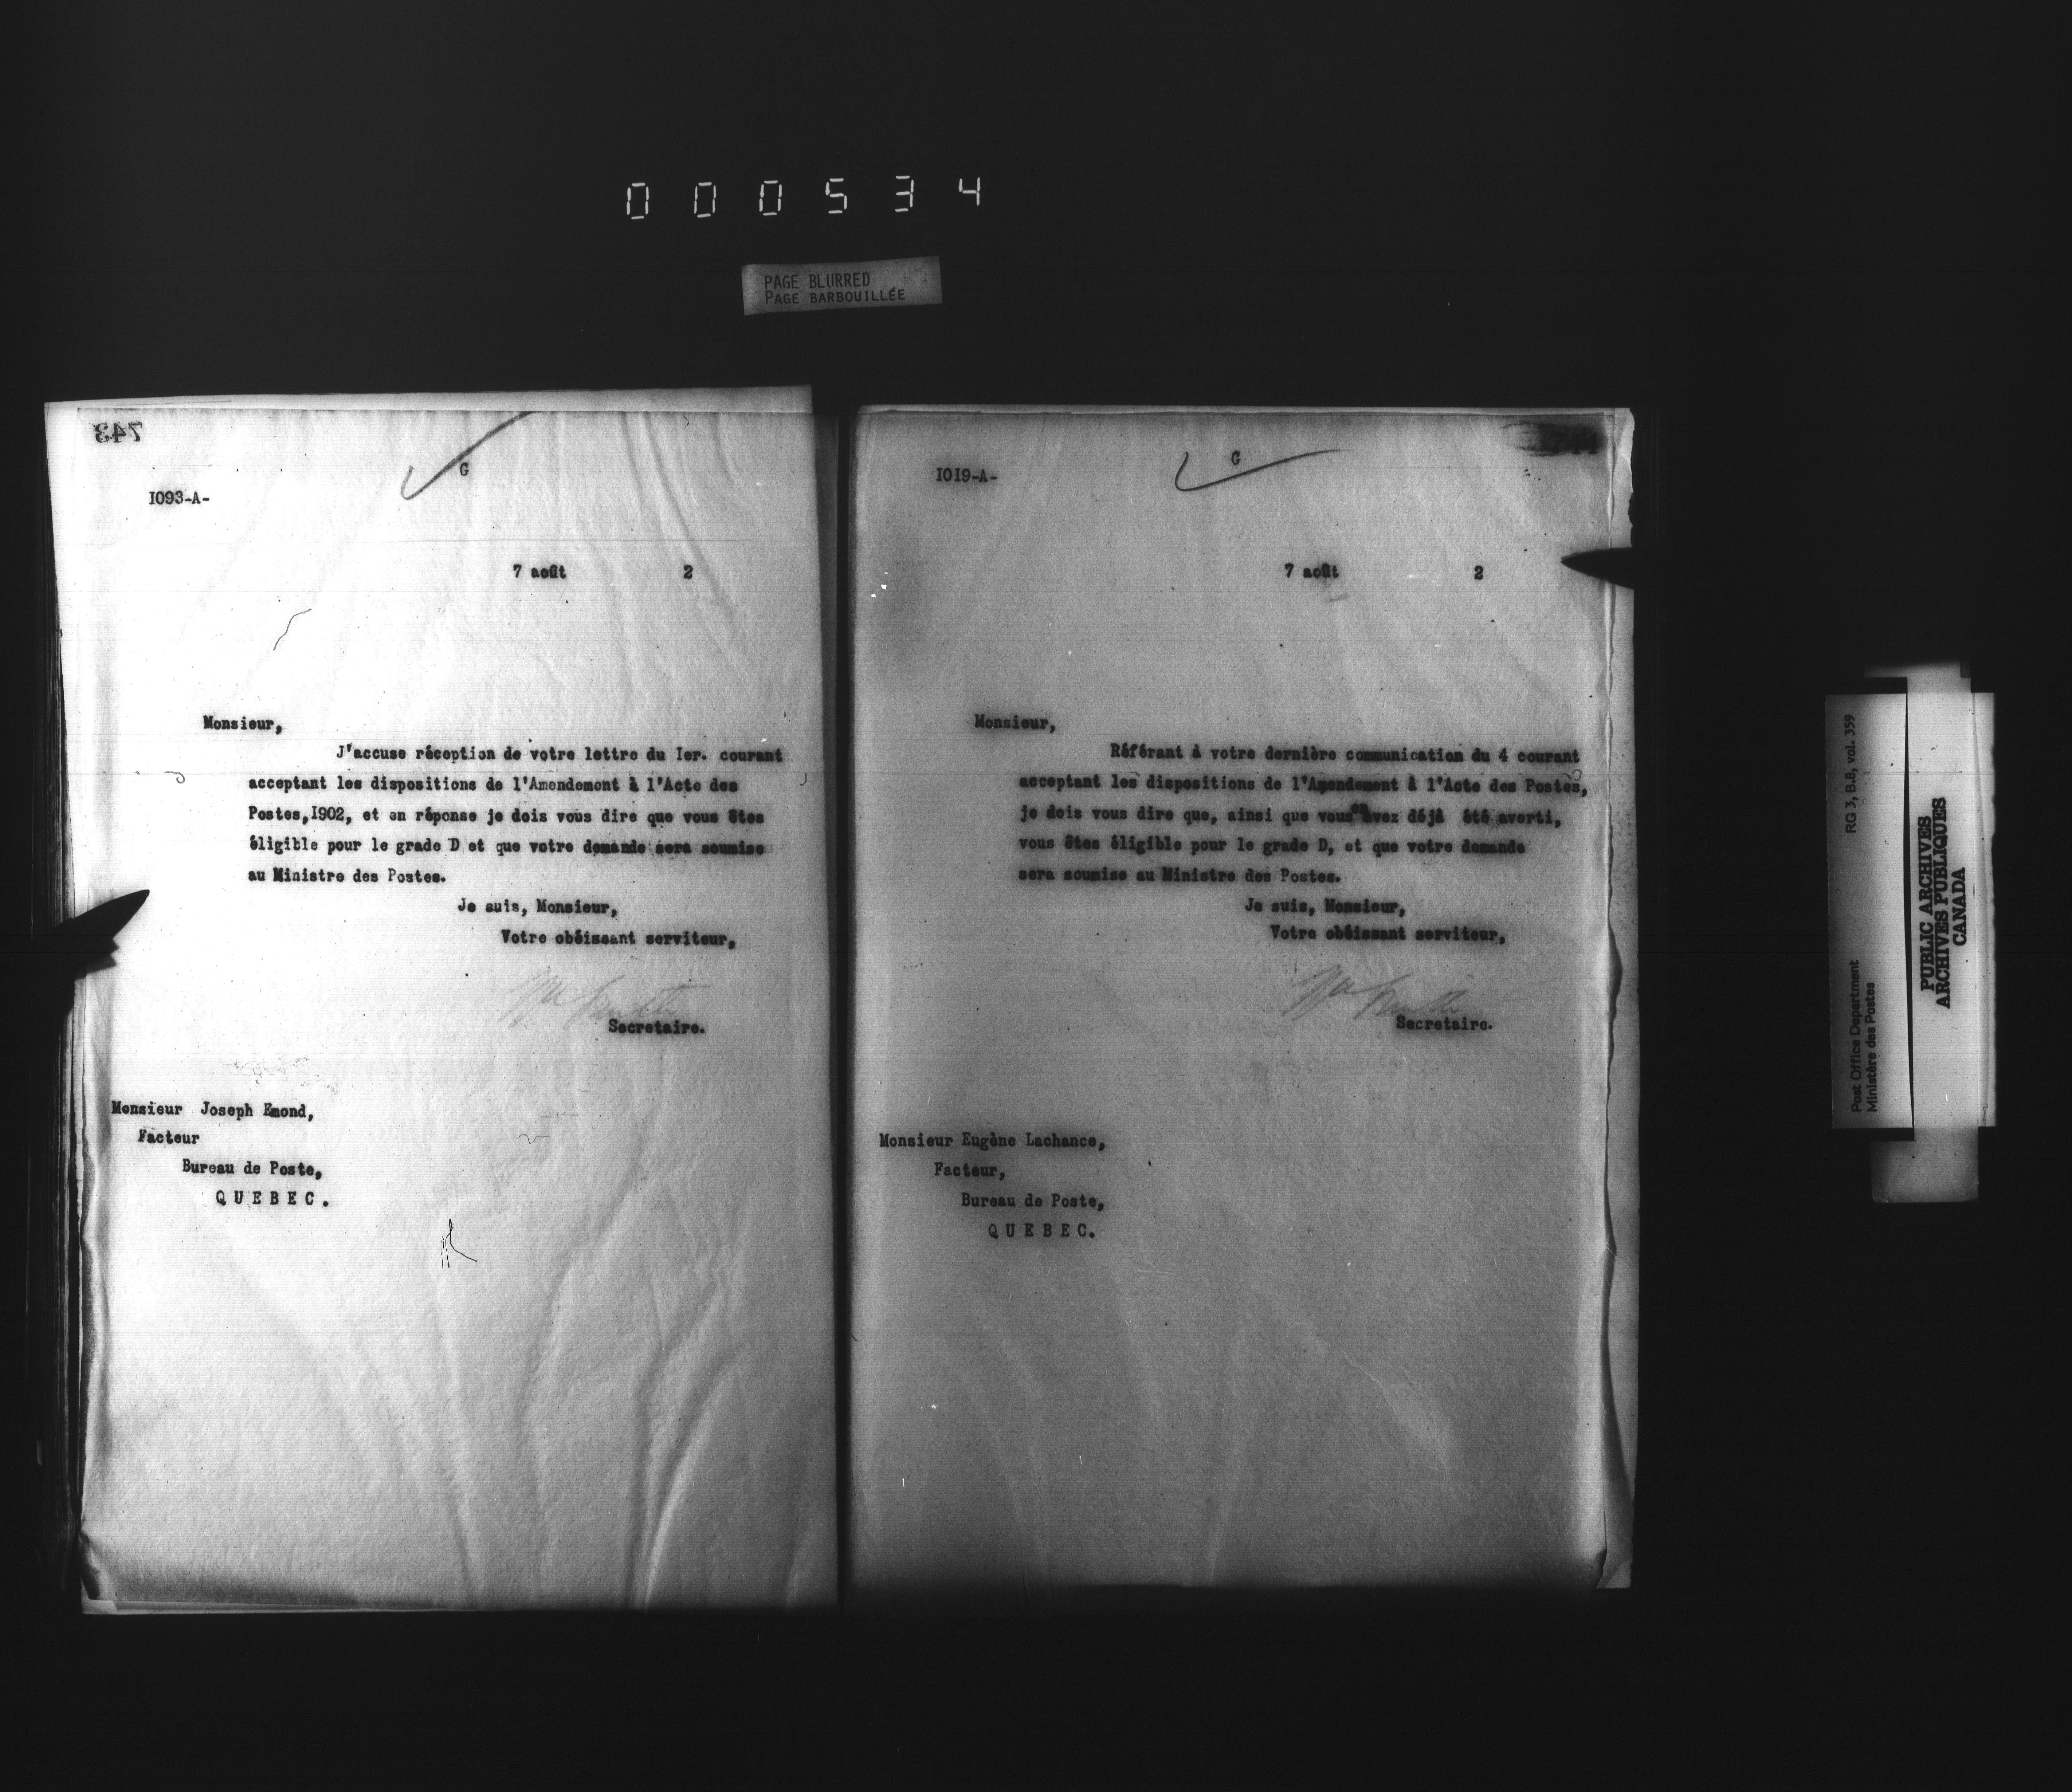 000534
PAGE BLURRED
PAGE BARBOUILLÉE
743
G
1093-A-
7 août 2
Monsieur,
J'accuse réception de votre lettre du Ier. courant
acceptant les dispositions de l'Amendement à l'Acte des
Postes,1902, et en réponse je dois vous dire que vous êtes
éligible pour le grade D et que votre demande sera soumise
au Ministre des Postes.
Je suis, Monsieur,
Votre obéissant serviteur,
Secretaire.
Monsieur Joseph Emond,
Facteur
Bureau de Poste,
QUEBEC.
G
1019-A-
7 août 2
Monsieur,
Référant à votre dernière communication du 4 courant
acceptant les dispositions de l'Amendement à l'Acte des Postes,
je dois vous dire que, ainsi que vous en avez déjà été averti,
vous êtes éligible pour le grade D, et que votre demande
sera soumise au Ministre des Postes.
Je suis, Monsieur,
Votre obéissant serviteur,
Secretaire.
Monsieur Eugène Lachance,
Facteur,
Bureau de Poste,
QUEBEC.
Post Office Department
Ministère des Postes
RG 3, B.8, vol. 359
PUBLIC ARCHIVES
ARCHIVES PUBLIQUES
CANADA